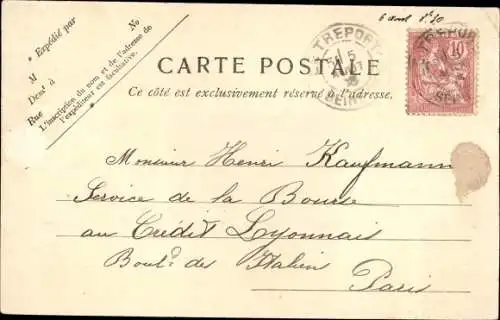 6 avril
TREPORT
10
* Expédié par
No
M
Demt à
Rue
L'inscription du nom et de l'adresse de
l'expéditeur est facultative.
CARTE POSTALE
Ce côté est exclusivement réservé à l'adresse.
Monsieur Henri Kaufmann
Service de la Bourse
au Crédit Lyonnais
Boul.d des Italiens
Paris